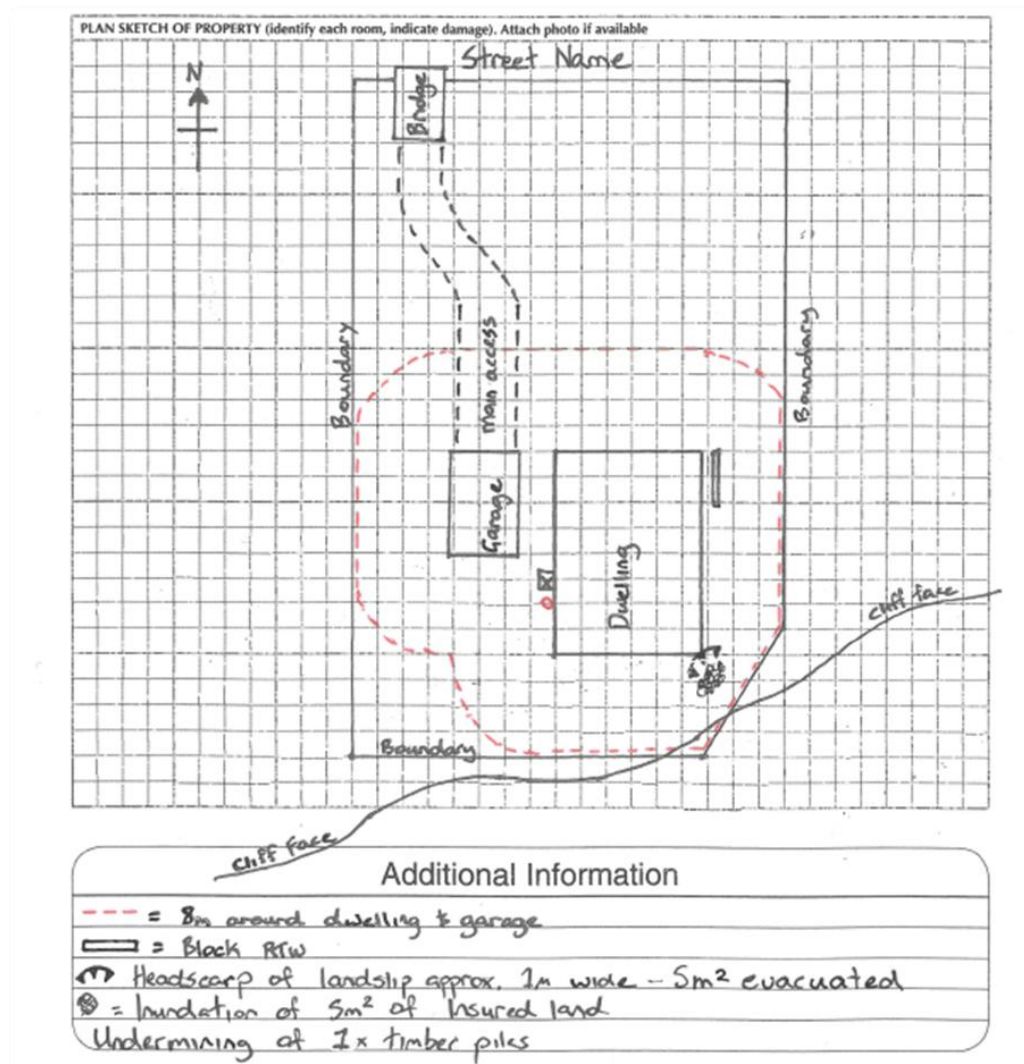 PLAN SKETCH OF PROPERTY (identify each room, indicate damage). Attach photo if available
Street Name
N
Bridge
Boundary
main access
Boundary
Garage
Dwelling
Cliff face
Boundary
Cliff Face
Additional Information
= 8m around dwelling & garage
= Block RTW
Headscarp of landslip approx. 1m wide - 5m² evacuated
= Inundation of 5m² of Insured land
Undermining of 1x timber piles